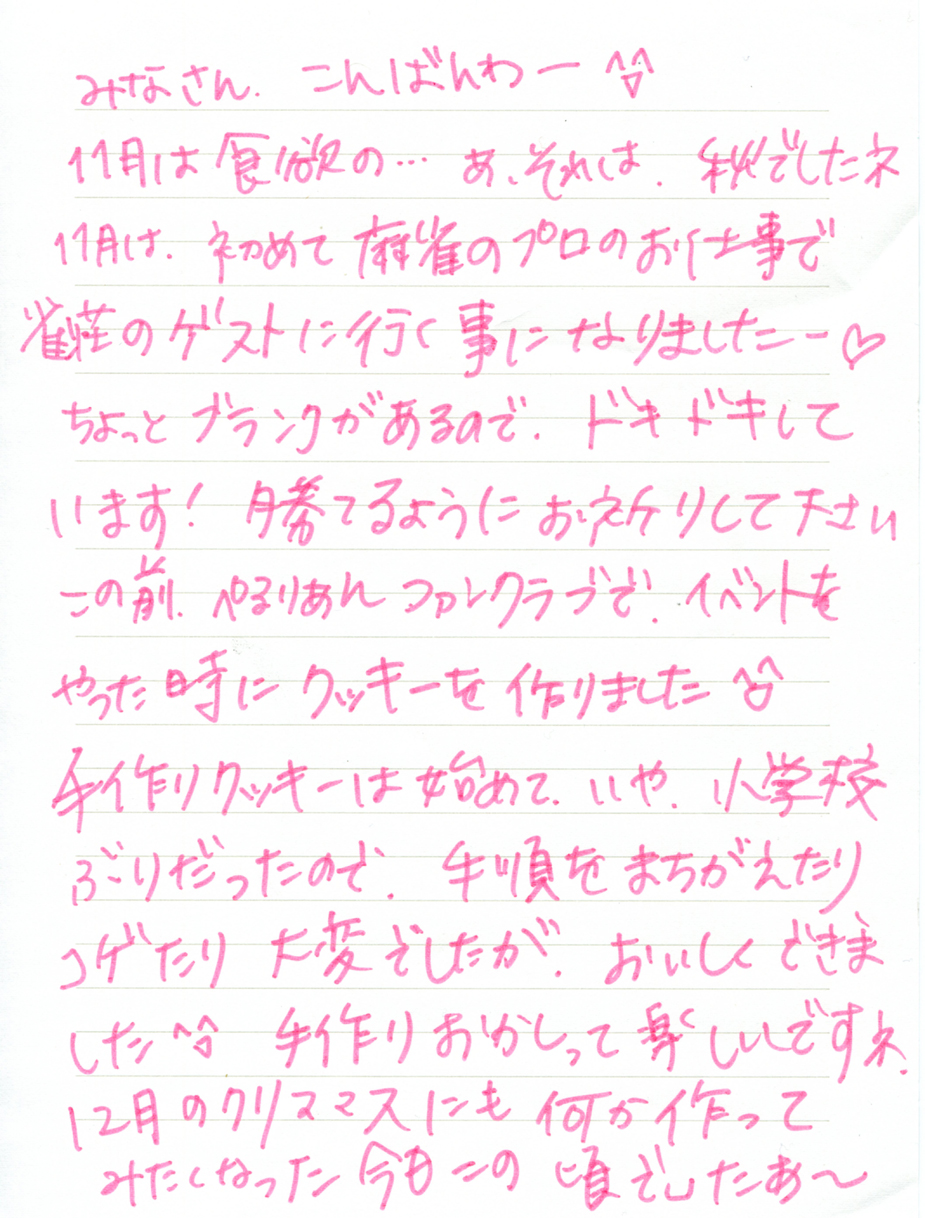 みなさん. こんばんわー ^▽^
11月は食欲の… あ、それは. 秋でしたネ
11月は. 初めて麻雀のプロのお仕事で
雀荘のゲストに行く事になりましたー♡
ちょっとブランクがあるので. ドキドキして
います! 勝てるようにお祈りして下さい
この前. ぺるりあんファンクラブで. イベントを
やった時にクッキーを作りました^▽^
手作りクッキーは始めて. いや. 小学校
ぶりだったので. 手順をまちがえたり
コゲたり大変でしたが. おいしくできま
した^▽^ 手作りおかしって楽しいですネ.
12月のクリスマスにも何か作って
みたくなった今日この頃でしたあ〜